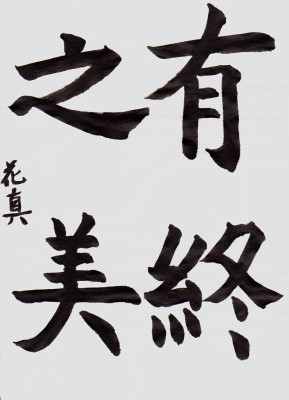 有終
之美
花真